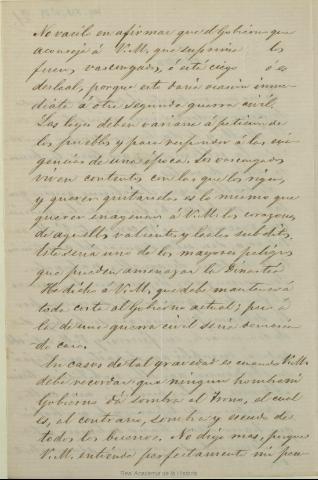 No vacilo en afirmar que el Gobierno que
aconseje á V.M. que suprima los
fueros vascongados, ó está ciego ó es
desleal, porque esto daria ocasion inme-
diata á otra segunda guerra civil.
Las leyes deben variarse á peticion de
los pueblos y para responder á las exi-
gencias de una época. Los vascongados
viven contentos con las que los rigen,
y querer quitarselas es lo mismo que
querer enagenar á V.M. los corazones
de aquellos valientes y leales subditos.
Esto seria uno de los mayores peligros
que pueden amenazar la Dinastia.
He dicho á V.M. que debe mantener á
toda costa al Gobierno actual; pero á
la de una guerra civil seria demasia-
do cara.
En casos de tal gravedad es cuando V.M.
debe recordar que ningun hombre ni
Gobierno dá sombra al Trono, el cual
es, al contrario, sombra y escudo de
todos los buenos. No digo mas, porque
V.M. entiende perfectamente mi pen-
Real Academia de la Historia